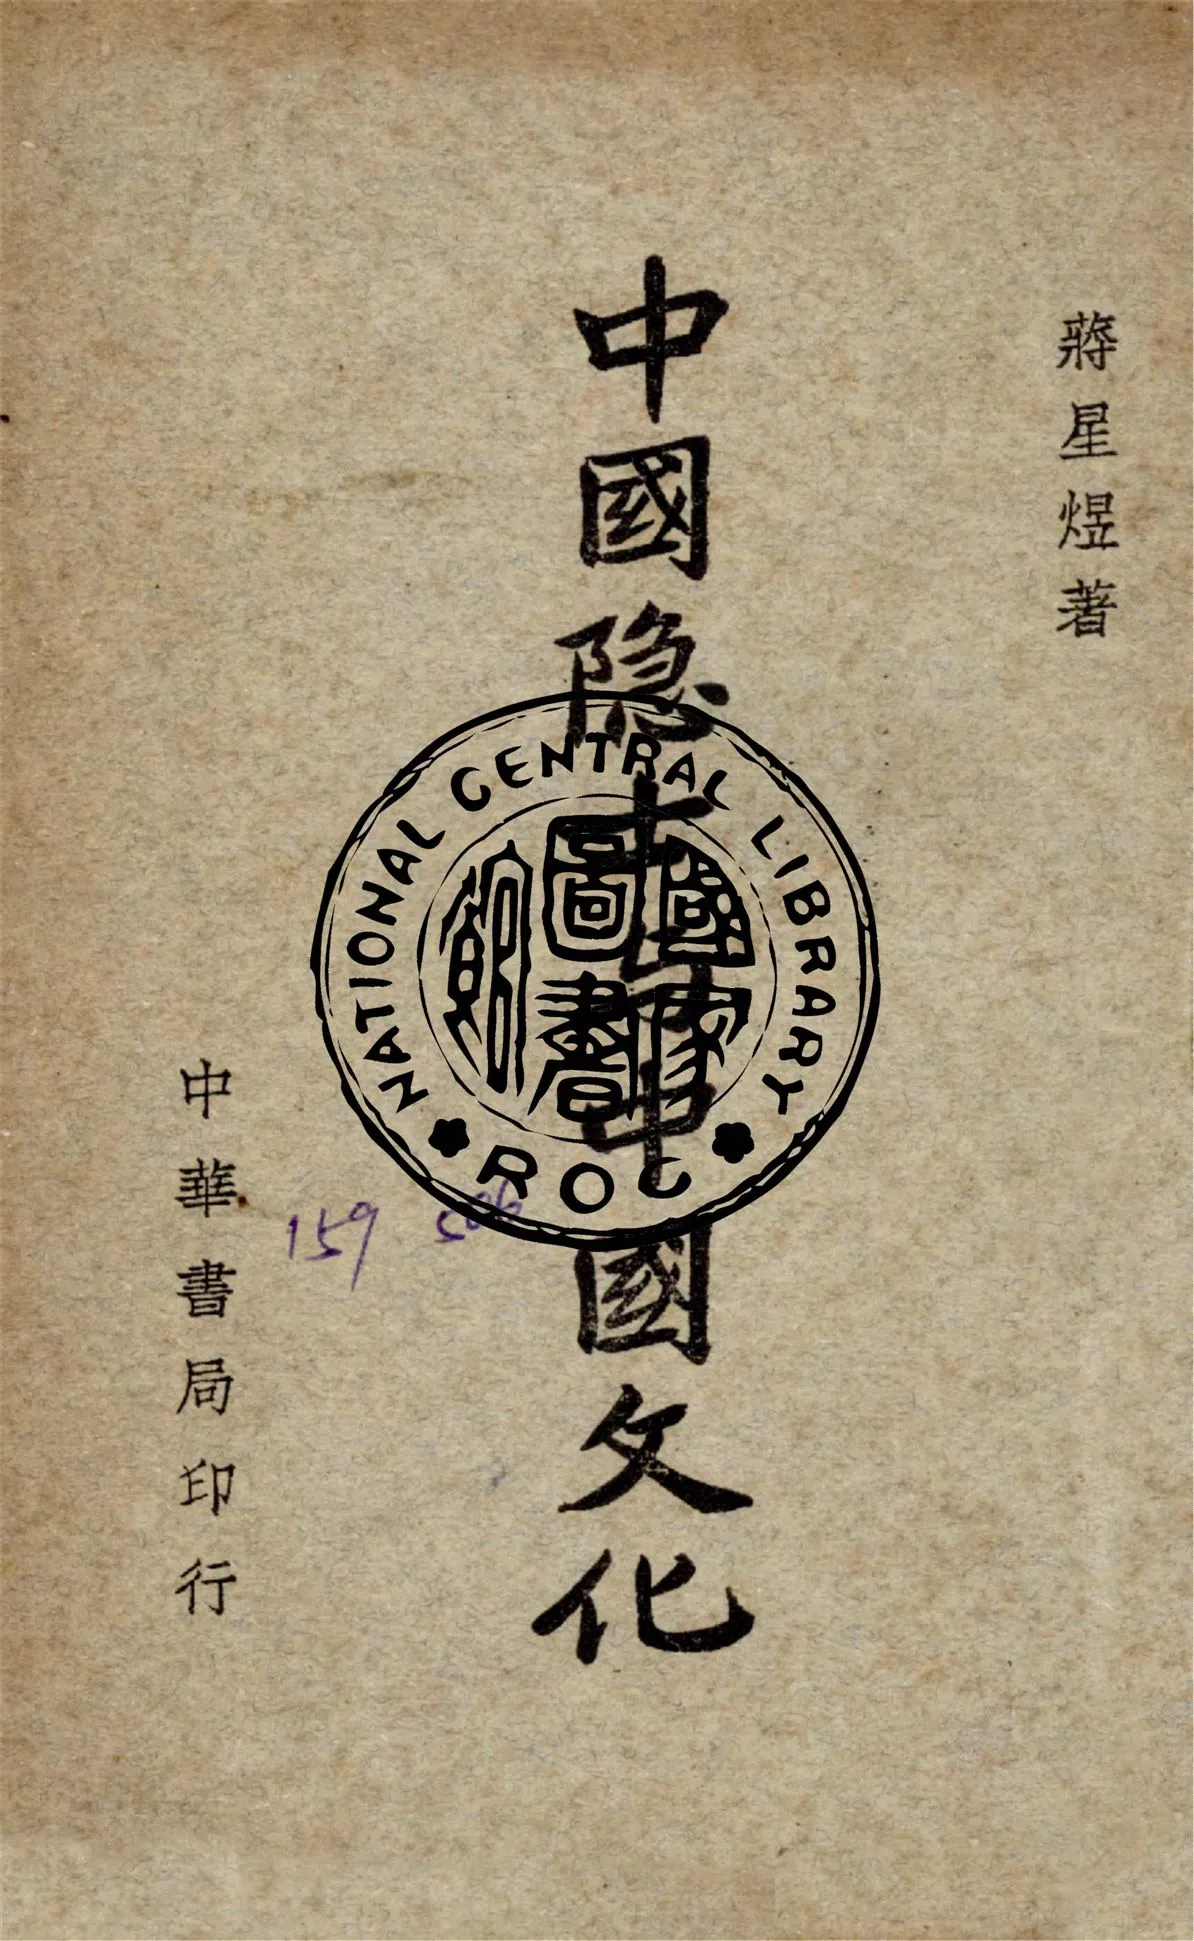 蔣星煜著
中國隐士与中國文化
中華書局印行
NATIONAL CENTRAL LIBRARY
ROC
國家
圖書
館
159